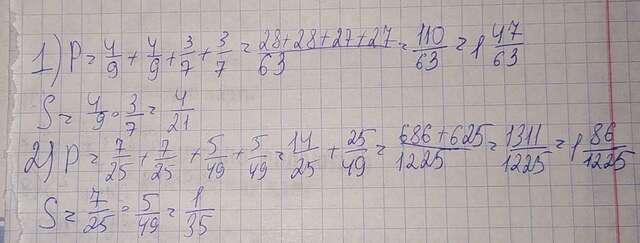 1) P = 4/9 + 4/9 + 3/7 + 3/7 = 28+28+27+27/63 = 110/63 = 1 47/63
S = 4/9 · 3/7 = 4/21
2) P = 7/25 + 7/25 + 5/49 + 5/49 = 14/25 + 25/49 = 686+625/1225 = 1311/1225 = 1 86/1225
S = 7/25 · 5/49 = 1/35